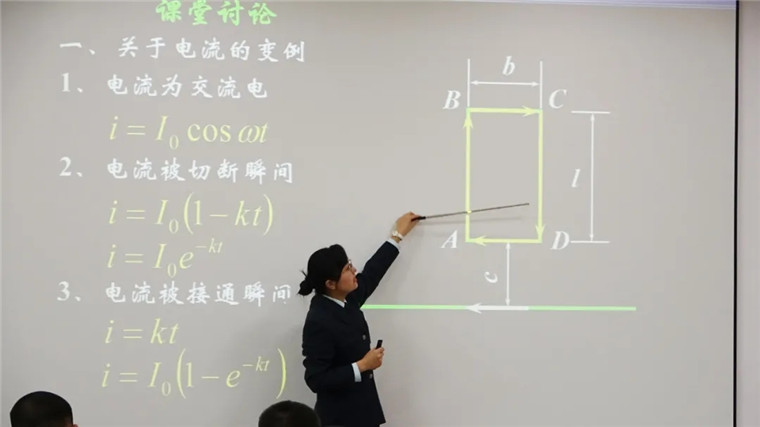 课堂讨论
一、关于电流的变例
1、电流为交流电
i = I₀ cos ωt
2、电流被切断瞬间
i = I₀(1 − kt)
i = I₀e⁻ᵏᵗ
3、电流被接通瞬间
i = kt
i = I₀(1 − e⁻ᵏᵗ)
b
B C
l
A D
c